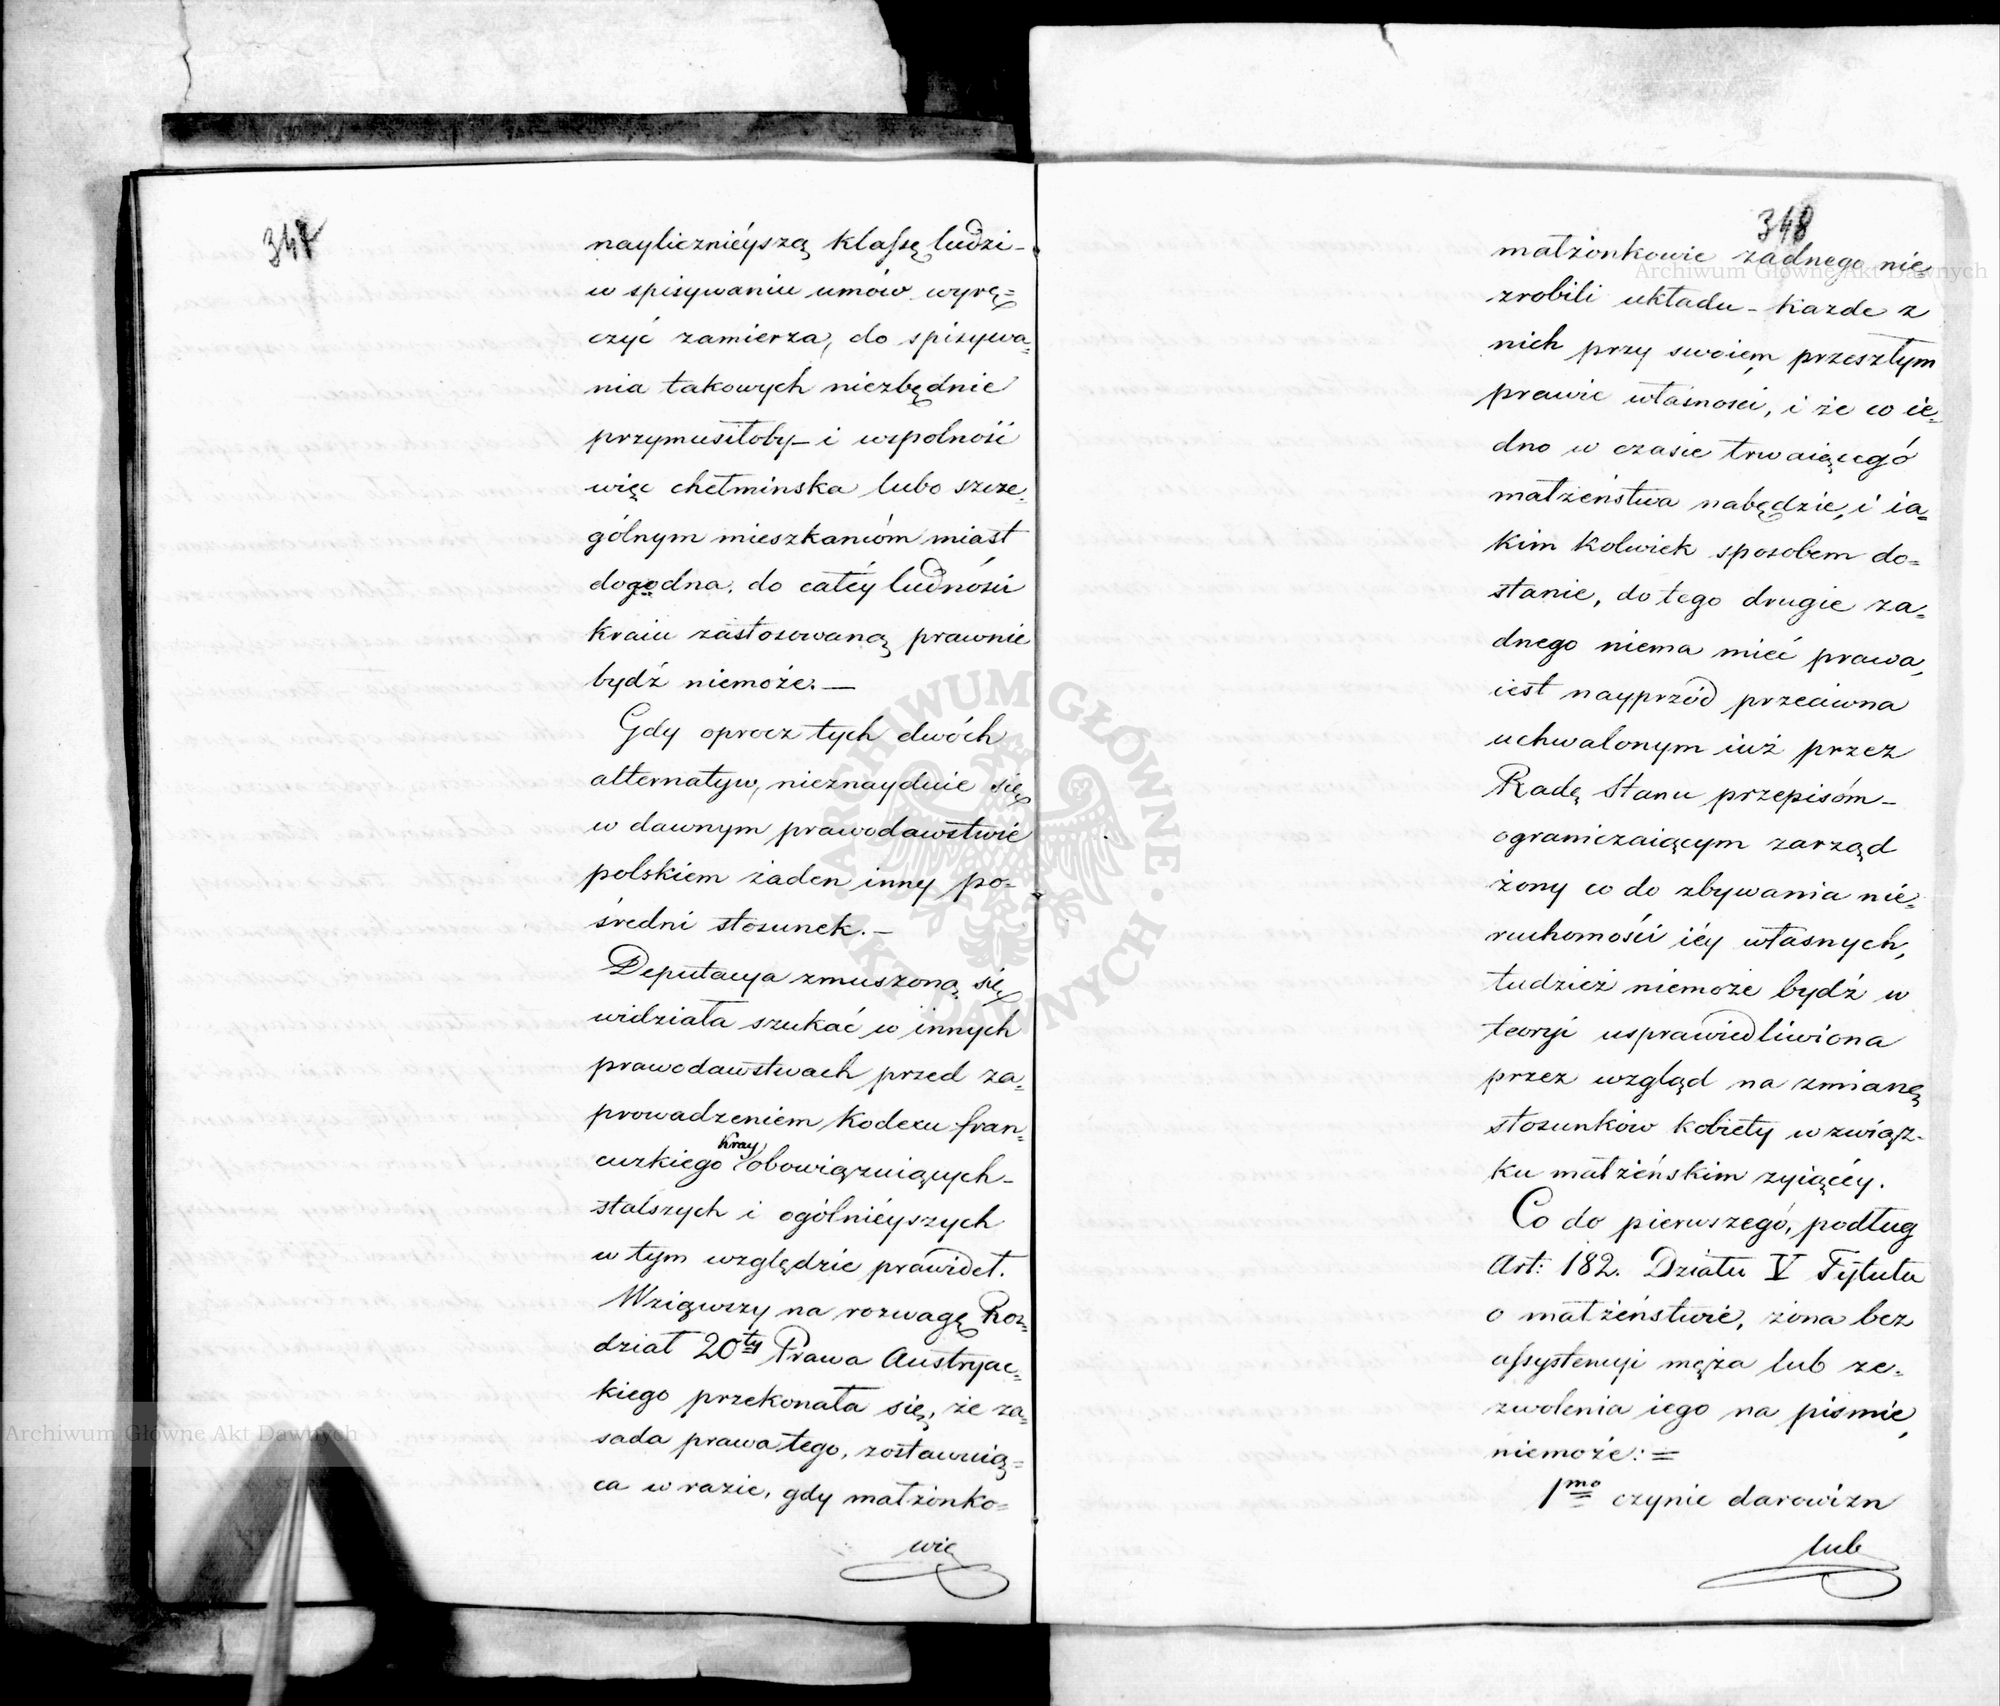 347
nayliczniéyszą klassę ludzi –
w spisywaniu umów wyrę=
czyć zamierza, do spisywa=
nia takowych niezbędnie
przymusiłoby – i wspolność
więc chełminska lubo szcze=
gólnym mieszkancóm miast
dogodna, do całéy ludności
kraiu zastosowaną prawnie
bydź niemoże. —
Gdy oprocz tych dwóch
alternatyw, nieznayduie się
w dawnym prawodawstwie
polskiem żaden inny po=
średni stosunek. –
Deputacya zmuszoną się
widziała szukać w innych
prawodawstwach przed za=
prowadzeniem Kodexu fran=
cuzkiego Kray obowiązuiących –
stalszych i ogólniéyszych
w tym względzie prawideł.
Wziąwszy na rozwagę Roz=
dział 20ty Prawa Austryac=
kiego przekonała się, że za=
sada prawa tego, zostawuią=
ca w razie, gdy małżonko=
wie
348
małżonkowie żadnego nie
zrobili układu – każde z
nich przy swoiem przeszłym
prawie własności, i że co ie=
dno w czasie trwaiącego
małżeństwa nabędzie, i ia=
kim kolwiek sposobem do=
stanie, do tego drugie ża=
dnego niema mieć prawa,
iest nayprzód przeciwna
uchwalonym iuż przez
Radę Stanu przepisóm –
ograniczaiącym zarząd
żony co do zbywania nie=
ruchomości iéy własnych,
tudzież niemoże bydź w
teoryi usprawiedliwiona
przez wzgląd na zmianę
stosunków kobiety w związ=
ku małżeńskim żyiącéy.
Co do pierwszego, podług
Art: 182. Działu V Tytułu
o małżeństwie, żona bez
assystencyi męża lub ze=
zwolenia iego na pismie,
niemoże: =
1mo czynić darowizn
lub
Archiwum Główne Akt Dawnych
Archiwum Główne Akt Dawnych
ARCHIWUM GŁÓWNE AKT DAWNYCH